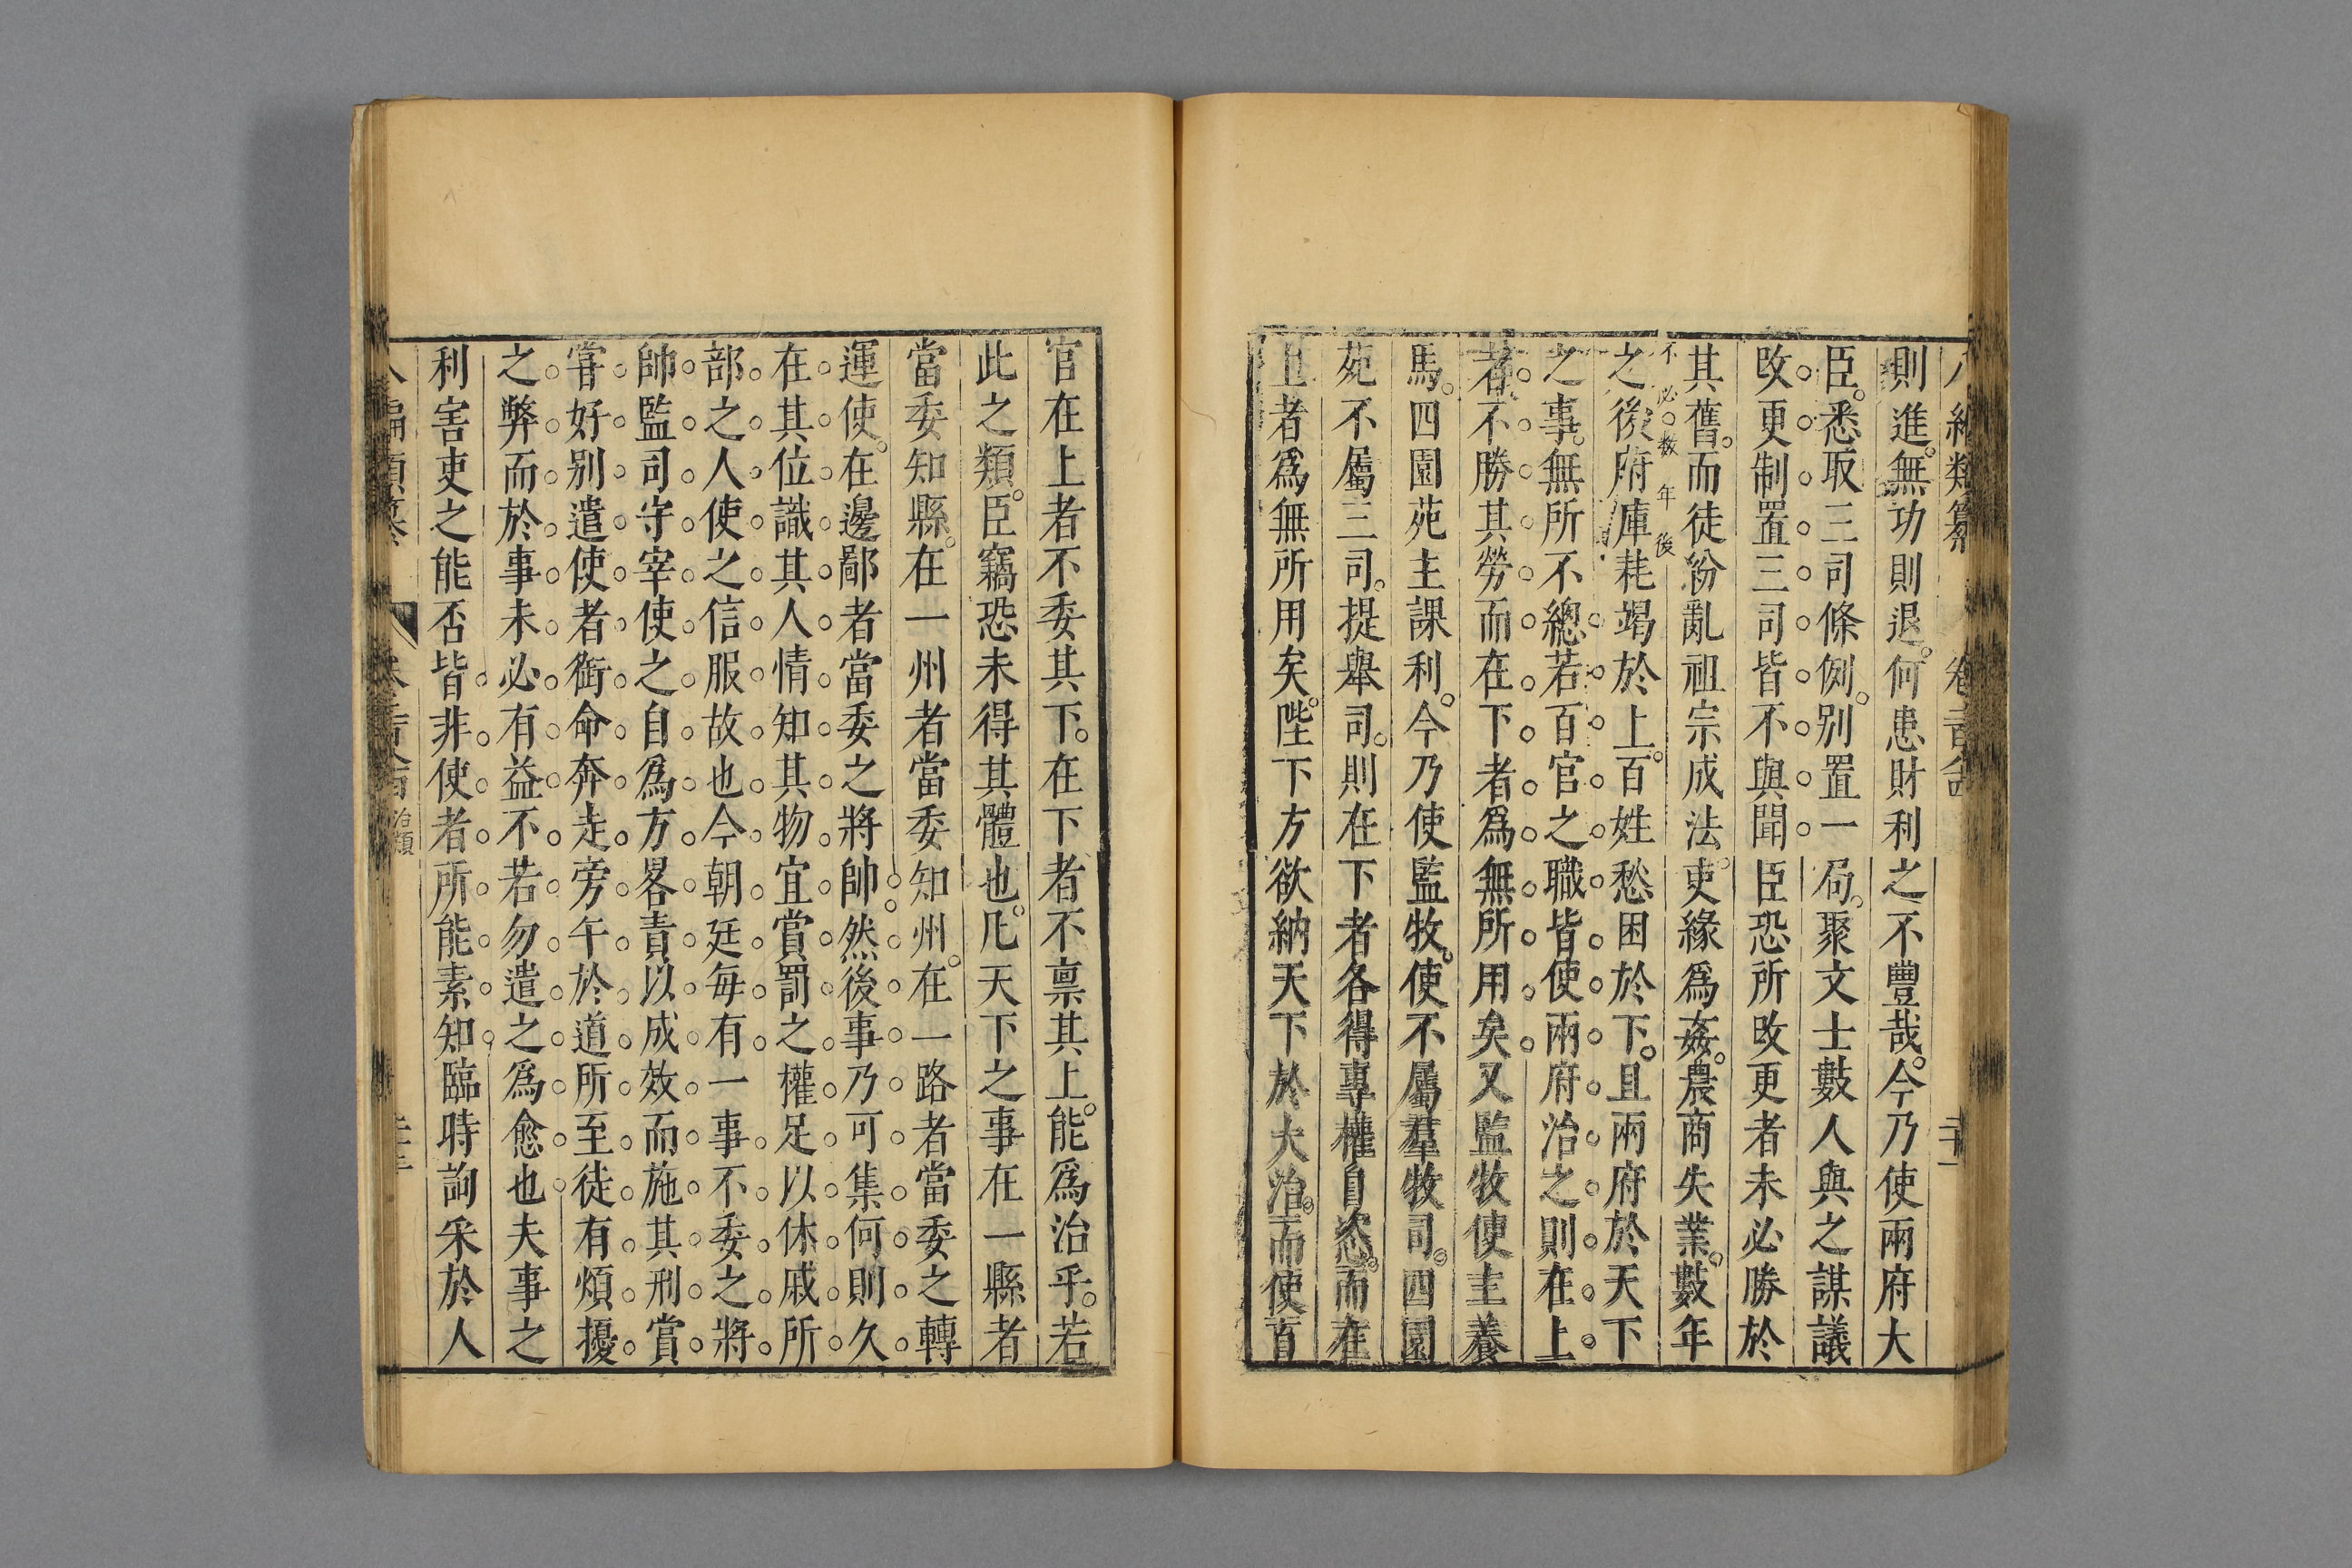 則進無功則退何患財利之不豐哉今乃使兩府大
臣悉取三司條例別置一局聚文士數人與之謀議
改更制置三司皆不與聞臣恐所改更者未必勝於
其舊而徒紛亂祖宗成法吏緣爲姦農商失業數年
不必數年後
之後府庫耗竭於上百姓愁困於下且兩府於天下
之事無所不總若百官之職皆使兩府治之則在上
者不勝其勞而在下者爲無所用矣又監牧使主養
馬四園苑主課利今乃使監牧使不屬羣牧司四園
苑不屬三司提舉司則在下者各得專權自恣而在
上者爲無所用矣陛下方欲納天下於大治而使百
官在上者不委其下在下者不禀其上能爲治乎若
此之類臣竊恐未得其體也凡天下之事在一縣者
當委知縣在一州者當委知州在一路者當委之轉
運使在邊鄙者當委之將帥然後事乃可集何則久
在其位識其人情知其物宜賞罰之權足以休戚所
部之人使之信服故也今朝廷每有一事不委之將
帥監司守宰使之自爲方畧責以成效而施其刑賞
甞好別遣使者銜命奔走旁午於道所至徒有煩擾
之弊而於事未必有益不若勿遣之爲愈也夫事之
利害吏之能否皆非使者所能素知臨時詢采於人